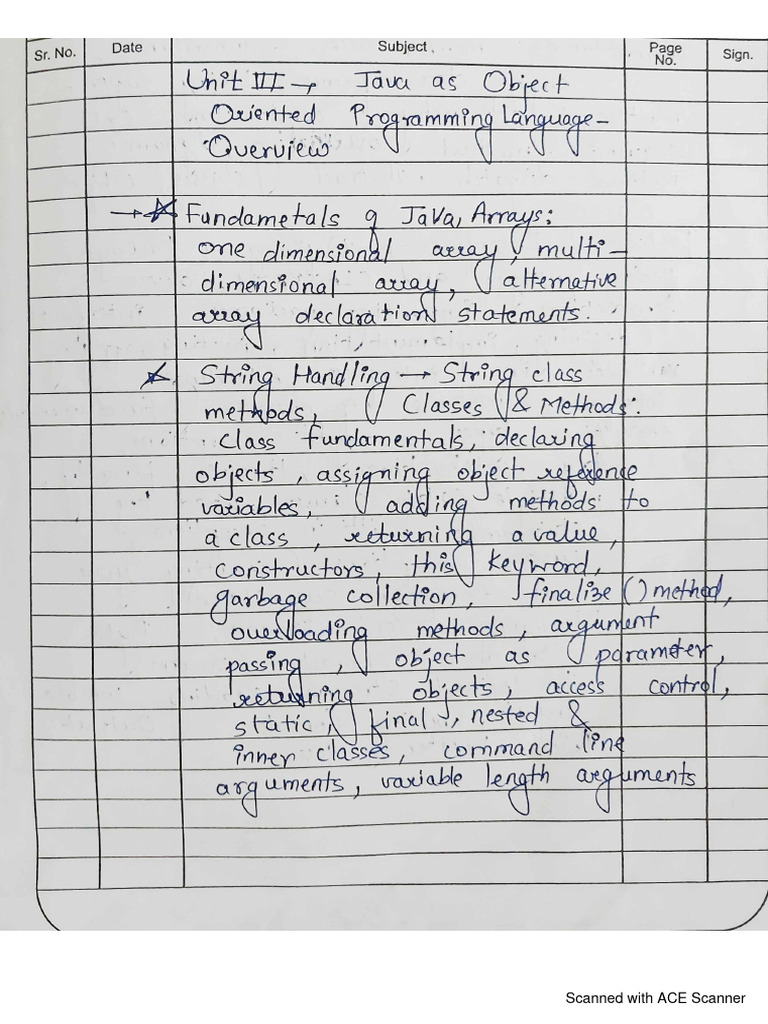 Sr. No. Date Subject Page No. Sign.
Unit III → Java as Object
Oriented Programming Language -
Overview
→ ☆ Fundametals of Java, Arrays:
one dimensional array, multi-
dimensional array, alternative
array declaration statements.
☆ String Handling → String class
methods, Classes & Methods:
class fundamentals, declaring
objects, assigning object reference
variables, adding methods to
a class, returning a value,
constructors, this keyword,
garbage collection, finalize () method,
overloading methods, argument
passing, object as parameter,
returning objects, access control,
static, final, nested &
inner classes, command line
arguments, variable length arguments
Scanned with ACE Scanner